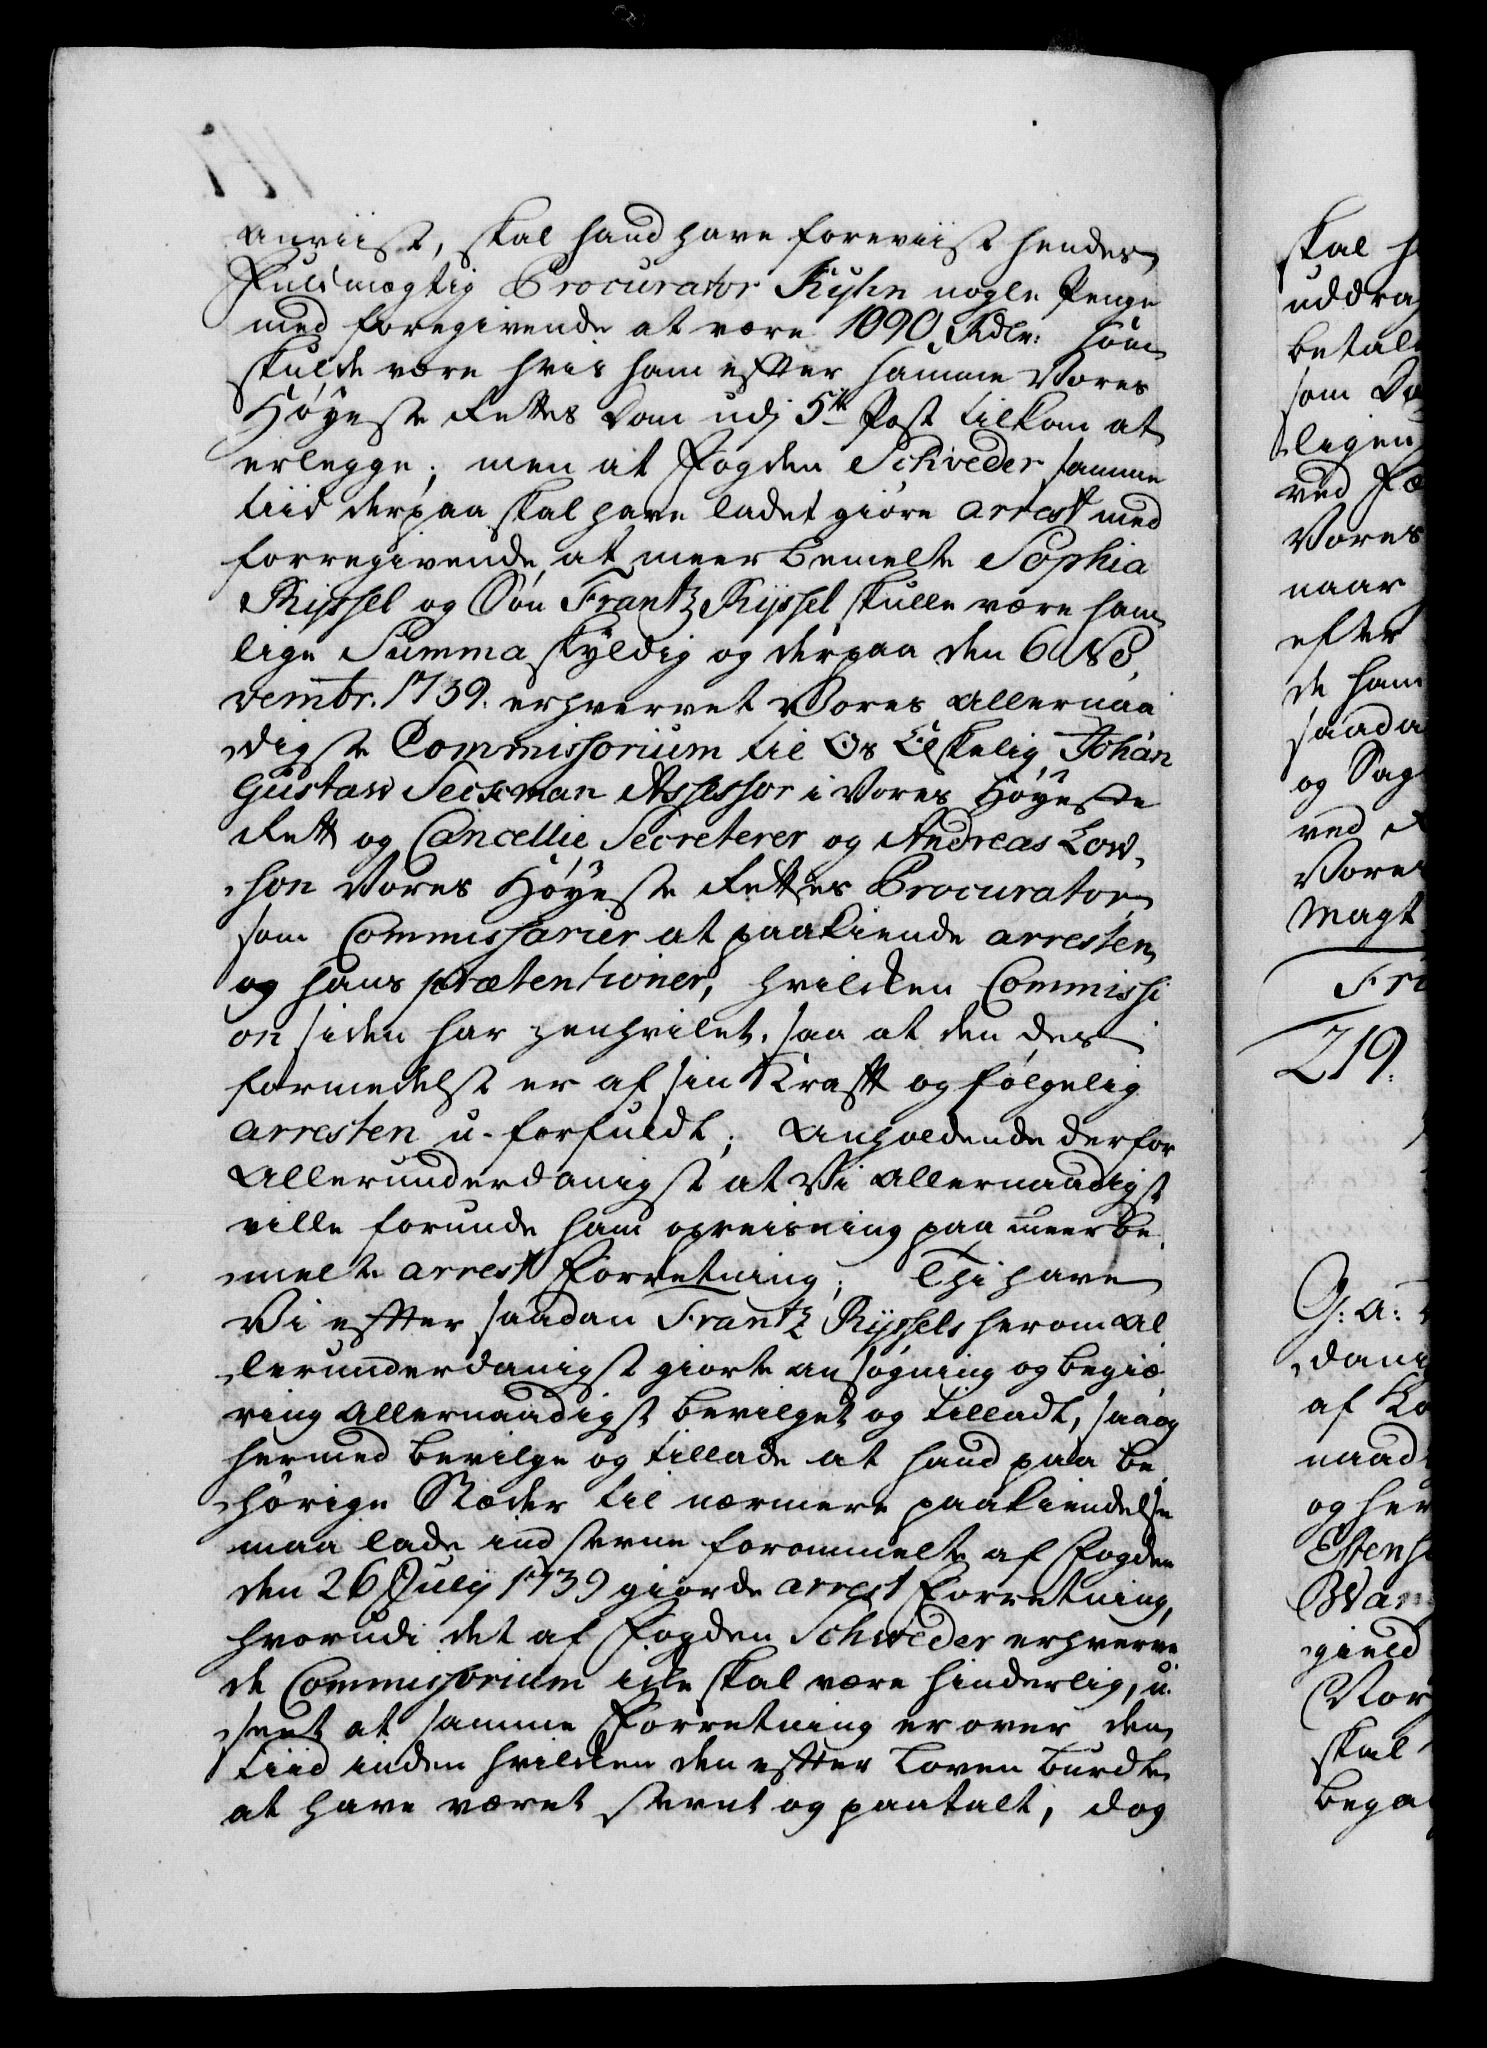 anviist, skal hand have foreviist hendes
Fuldmægtig Procurator Kyhn nogle Penge
med foregivende at være 1090 Rdlr: som
skulde være hvis ham efter samme Vores
Høyeste Rettes Dom udj 5te Post tilkom at
erlegge; men at Fogden Schveder samme
tiid derpaa skal have ladet giøre arrest med
forregivende, at meerbemelte Sophia
Ryssel og Søn Frantz Ryssel skulle være ham
lige Summa skyldig og derpaa den 6 No-
vembr. 1739. erhvervet Vores allernaa
digste Commissorium til Os Elskelig Johan
Gustaw Seckman Assessor i Vores Høyeste
Rett og Cancellie Secreterer og Andreas Low-
son Vores Høyeste Rettes Procurator
som Commissarier at paakiende arresten
og hans prætentioner, hvilcken Commissi
on siden har henhvilet, saa at den des
formedelst er af sin Krafft og følgelig
arresten u-forfuldt; Anholdende derfor
Allerunderdanigst at Vi allernaadigst
ville forunde ham opreisning paa meerbe-
melte arrest Forretning; Thi have
Vi efter saadan Frantz Ryssels herom al
lerunderdanigst giorte ansøgning og begiæ-
ring allernaadigst bevilget og tilladt, saa og
hermed bevilge og tillade at hand paa be-
hørige Stæder til nærmere paakiendelse
maa lade ind stevne forommelte af Fogden
den 26 July 1739 giorde arrest Forretning,
hvorudi det af Fogden Schweder erhverve
de Commissorium icke skal være hinderlig, u-
seet at samme Forretning er over den
tiid inden hvilcken den efter Loven burdte
at have været stevnt og paatalt, dog
skal h
uddra
betal
som Do
ligen
ved Fæ
Vores
naar
efter
de ham
saada
og Sag
ved
Vores
Magt
Fri
219.
G: a:
dani
af Ko
naad
og her
Estens
Wam
gield
Vor
skal
bega